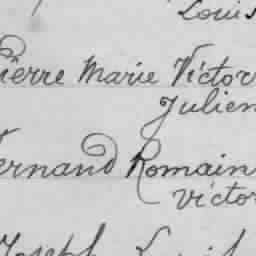 Louis
Pierre Marie Victor
Julien
Fernand Romain
Victor
Joseph